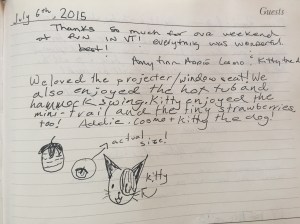 July 6th, 2015
Guests
Thanks so much for our weekend
of fun in VT! Everything was wonderful.
best!
Kitty the d
We loved the projecter/window seat! We
also enjoyed the hot tub and
hammock swing. Kitty enjoyed the
mini-trail and the tiny strawberries
too! Addie, Cosmo + Kitty the dog!
actual
size!
Kitty